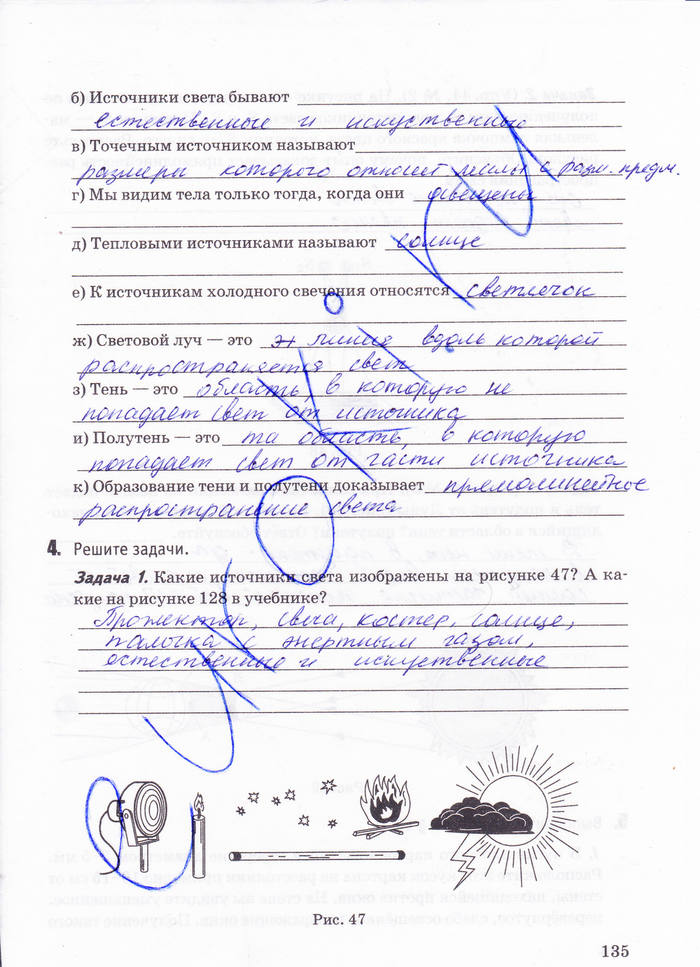 б) Источники света бывают
естественные и искуственные
в) Точечным источником называют
размеры которого относит. малы с разм. предм.
г) Мы видим тела только тогда, когда они освещены
д) Тепловыми источниками называют солнце
е) К источникам холодного свечения относятся светлячок
ж) Световой луч — это линия вдоль которой
распространяется свет
з) Тень — это область, в которую не
попадает свет от источника
и) Полутень — это та область, в которую
попадает свет от части источника
к) Образование тени и полутени доказывает прямолинейное
распространение света
4. Решите задачи.
Задача 1. Какие источники света изображены на рисунке 47? А ка-
кие на рисунке 128 в учебнике?
Прожектор, свеча, костер, солнце,
палочка с инертным газом,
естественные и искуственные
Рис. 47
135